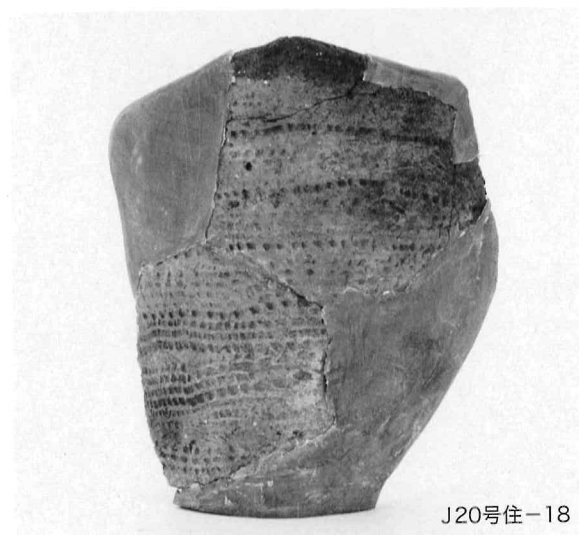 J20号住－18